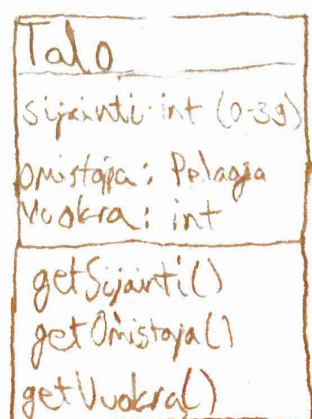 Talo
sijainti: int (0-39)
omistaja: Pelaaja
Vuokra: int
getSijainti()
getOmistaja()
getVuokra()